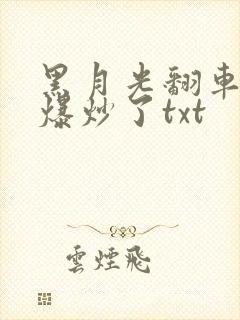 黑月光翻車
爆炒了txt
雲煙飛